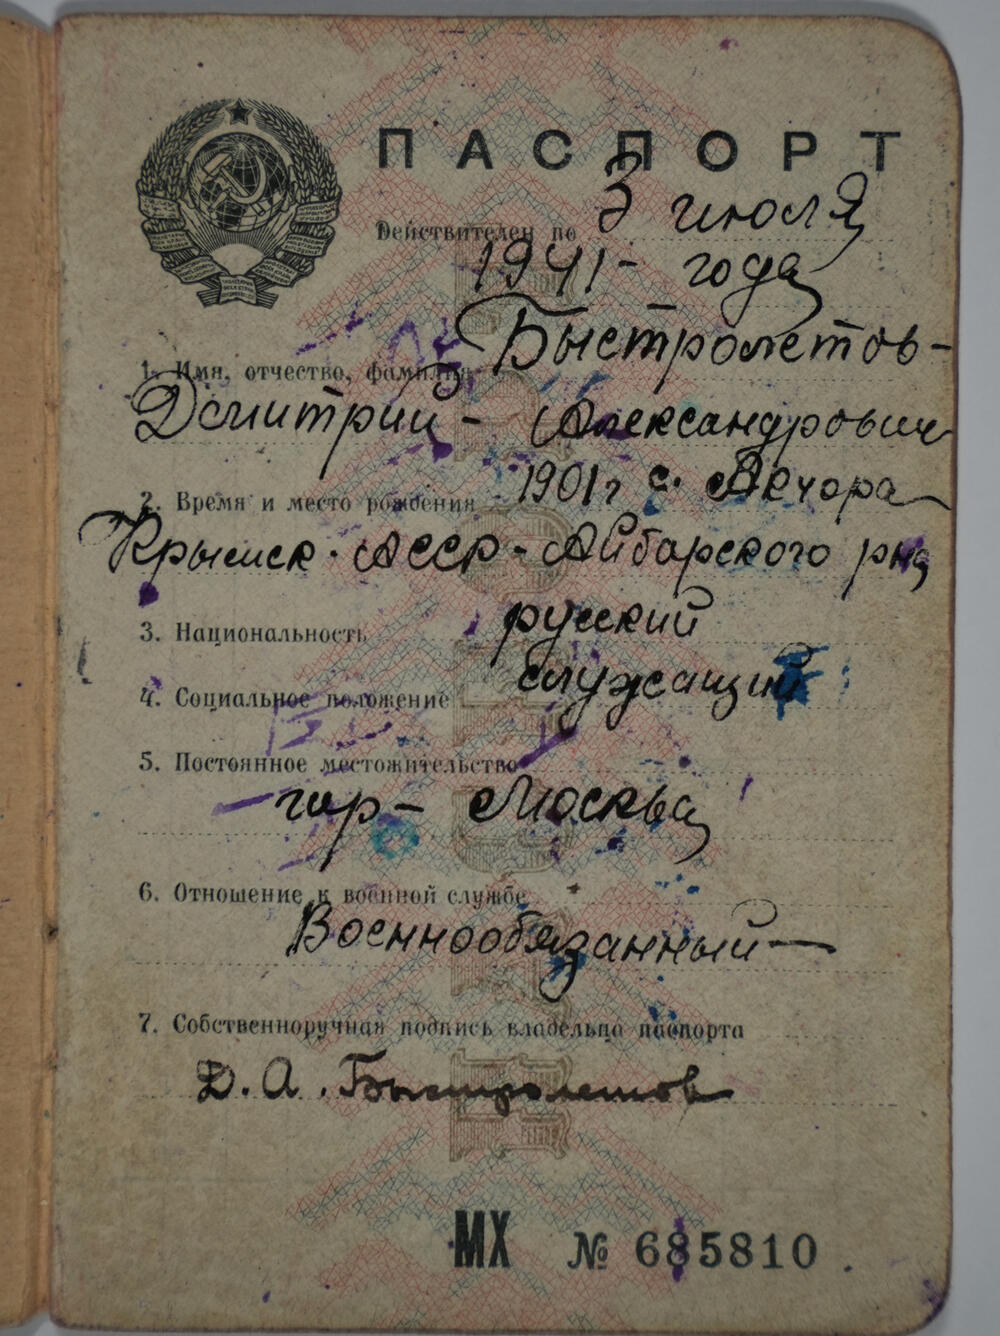 ПАСПОРТ
Действителен по 3 июля
1941 - года
Быстролетов -
1. Имя, отчество, фамилия
Дмитрий - Александрович
2. Время и место рождения 1901 г с. Акчора
Крымск. АССР - Айбарского рна
3. Национальность русский
4. Социальное положение служащий
5. Постоянное местожительство
гор - Москва
6. Отношение к военной службе
Военнообязанный -
7. Собственноручная подпись владельца паспорта
Д. А. Быстролетов
МХ № 685810